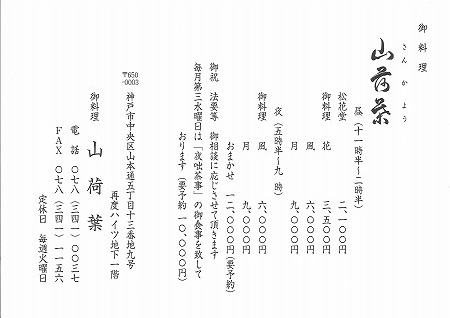 御料理
さんかよう
山荷葉
昼(十一時半〜二時半)
松花堂 二、一〇〇円
御料理 花 三、五〇〇円
風 六、〇〇〇円
月 九、〇〇〇円
夜(五時半〜九 時)
御料理 風 六、〇〇〇円
月 九、〇〇〇円
おまかせ 一二、〇〇〇円(要予約)
御祝 法要等 御相談に応じさせて頂きます
毎月第三水曜日は「夜咄茶事」の御食事を致して
おります(要予約一〇、〇〇〇円)
〒650
-0003
神戸市中央区山本通五丁目十三番地九号
再度ハイツ地下一階
御料理 山荷葉
電話 〇七八(三四一)〇〇三七
FAX 〇七八(三四一)一一五六
定休日 毎週火曜日